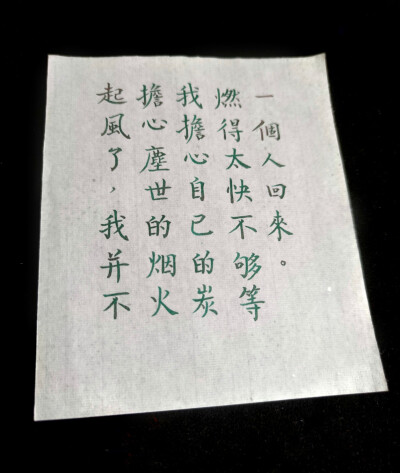 起風了，我并不
擔心塵世的烟火
我擔心自己的炭
燃得太快不够等
一個人回來。